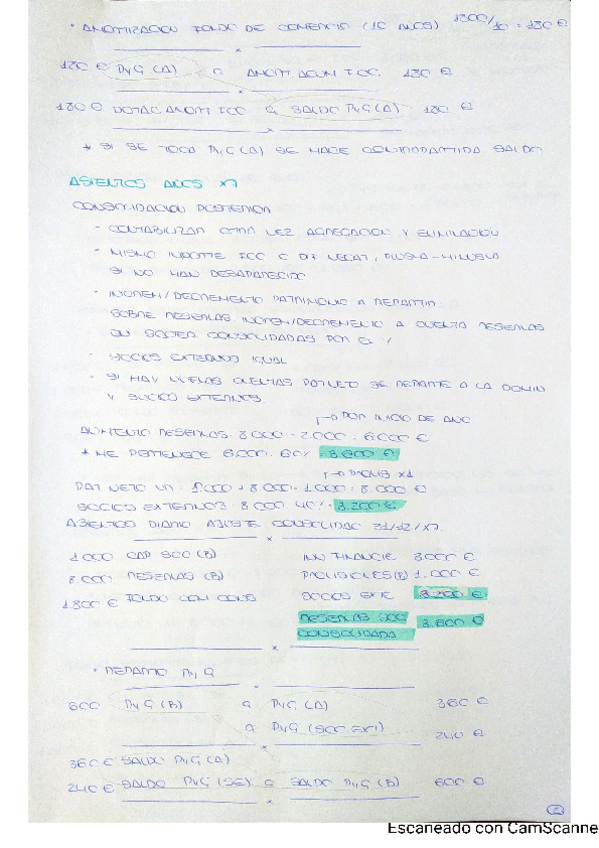 · AMORTIZACION FONDO DE COMERCIO (10 AÑOS) 1800/10 = 180 €
180 € PyG (A) a AMORT. ACUM FCC. 180 €
180 € DOTAC AMORT FCC a SALDO PyG (A) 180 €
* SI SE TOCA PyG (A) SE HACE CONTRAPARTIDA SALDO
ASIENTOS AÑOS X7
CONSOLIDACION POSTERIOR
- CONTABILIZAR OTRA VEZ AGREGACION Y ELIMINACION
- MISMO IMPORTE FCC O DF NEGAT, PLUSVA-MINUSVA
SI NO HAN DESAPARECIDO
- INCREM/DECREMENTO PATRIMONIO A REPARTIR
SOBRE RESERVAS INCREM/DECREMENTO A CUENTA RESERVAS
EN SOCIED CONSOLIDADAS POR EL %
- SOCIOS EXTERNOS IGUAL
- SI HAY NUEVAS CUENTAS PAT NETO SE REPARTE A LA DOMIN
Y SOCIOS EXTERNOS
→ POR INICIO DE AÑO
AUMENTO RESERVAS: 8 000 - 2.000 = 6000 €
* ME PERTENECE 6.000 · 60% = 3.600 €
PAT NETO
SOCIOS EXTERNOS: 8 000 · 40% = 3.200 €
ASIENTOS DIARIO AJUSTE CONSOLIDAC 31/12/X7
1 000 CAP SOC (B) INV FINANCIE 3000 €
8 000 RESERVAS (B) PROVISIONES (B) 1.000 €
1800 € FONDO COM CONS SOCIOS EXTE 3.200 €
RESERVAS SOC CONSOLIDADA 3.600 €
· REPARTO PyG
600 PyG (B) a PyG (A) 360 €
a PyG (SOC EXT) 240 €
360 € SALDO PyG (A)
240 € SALDO PyG (SE) a SALDO PyG (B) 600 €
Escaneado con CamScanne